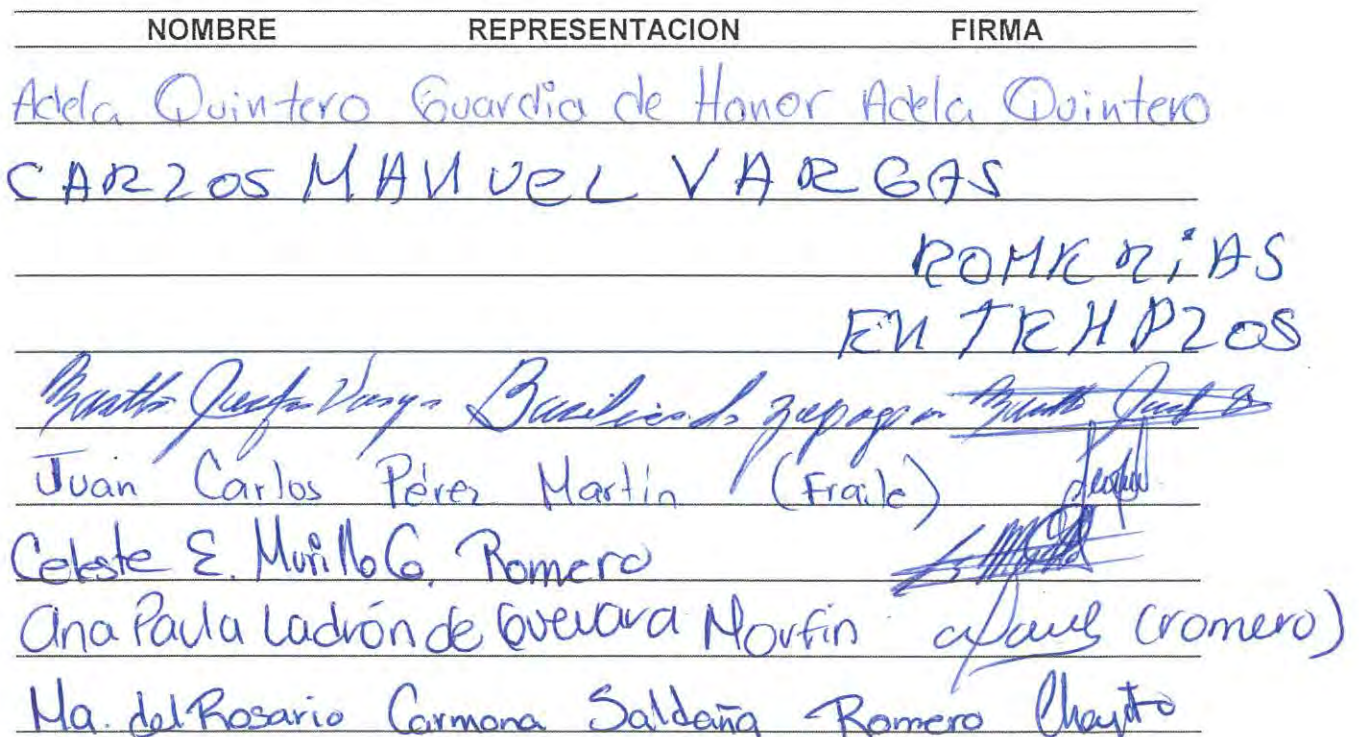 NOMBRE REPRESENTACION FIRMA
Adela Quintero Guardia de Honor Adela Quintero
CARLOS MANUEL VARGAS
ROMERiAS
EN TEMPLOS
Basilica de Zapopan
Juan Carlos Pérez Martín (Fraile)
Celeste E. Murillo G. Romero
Ana Paula Ladrón de Guevara Morfin (romero)
Ma. del Rosario Carmona Saldaña Romero Chayito